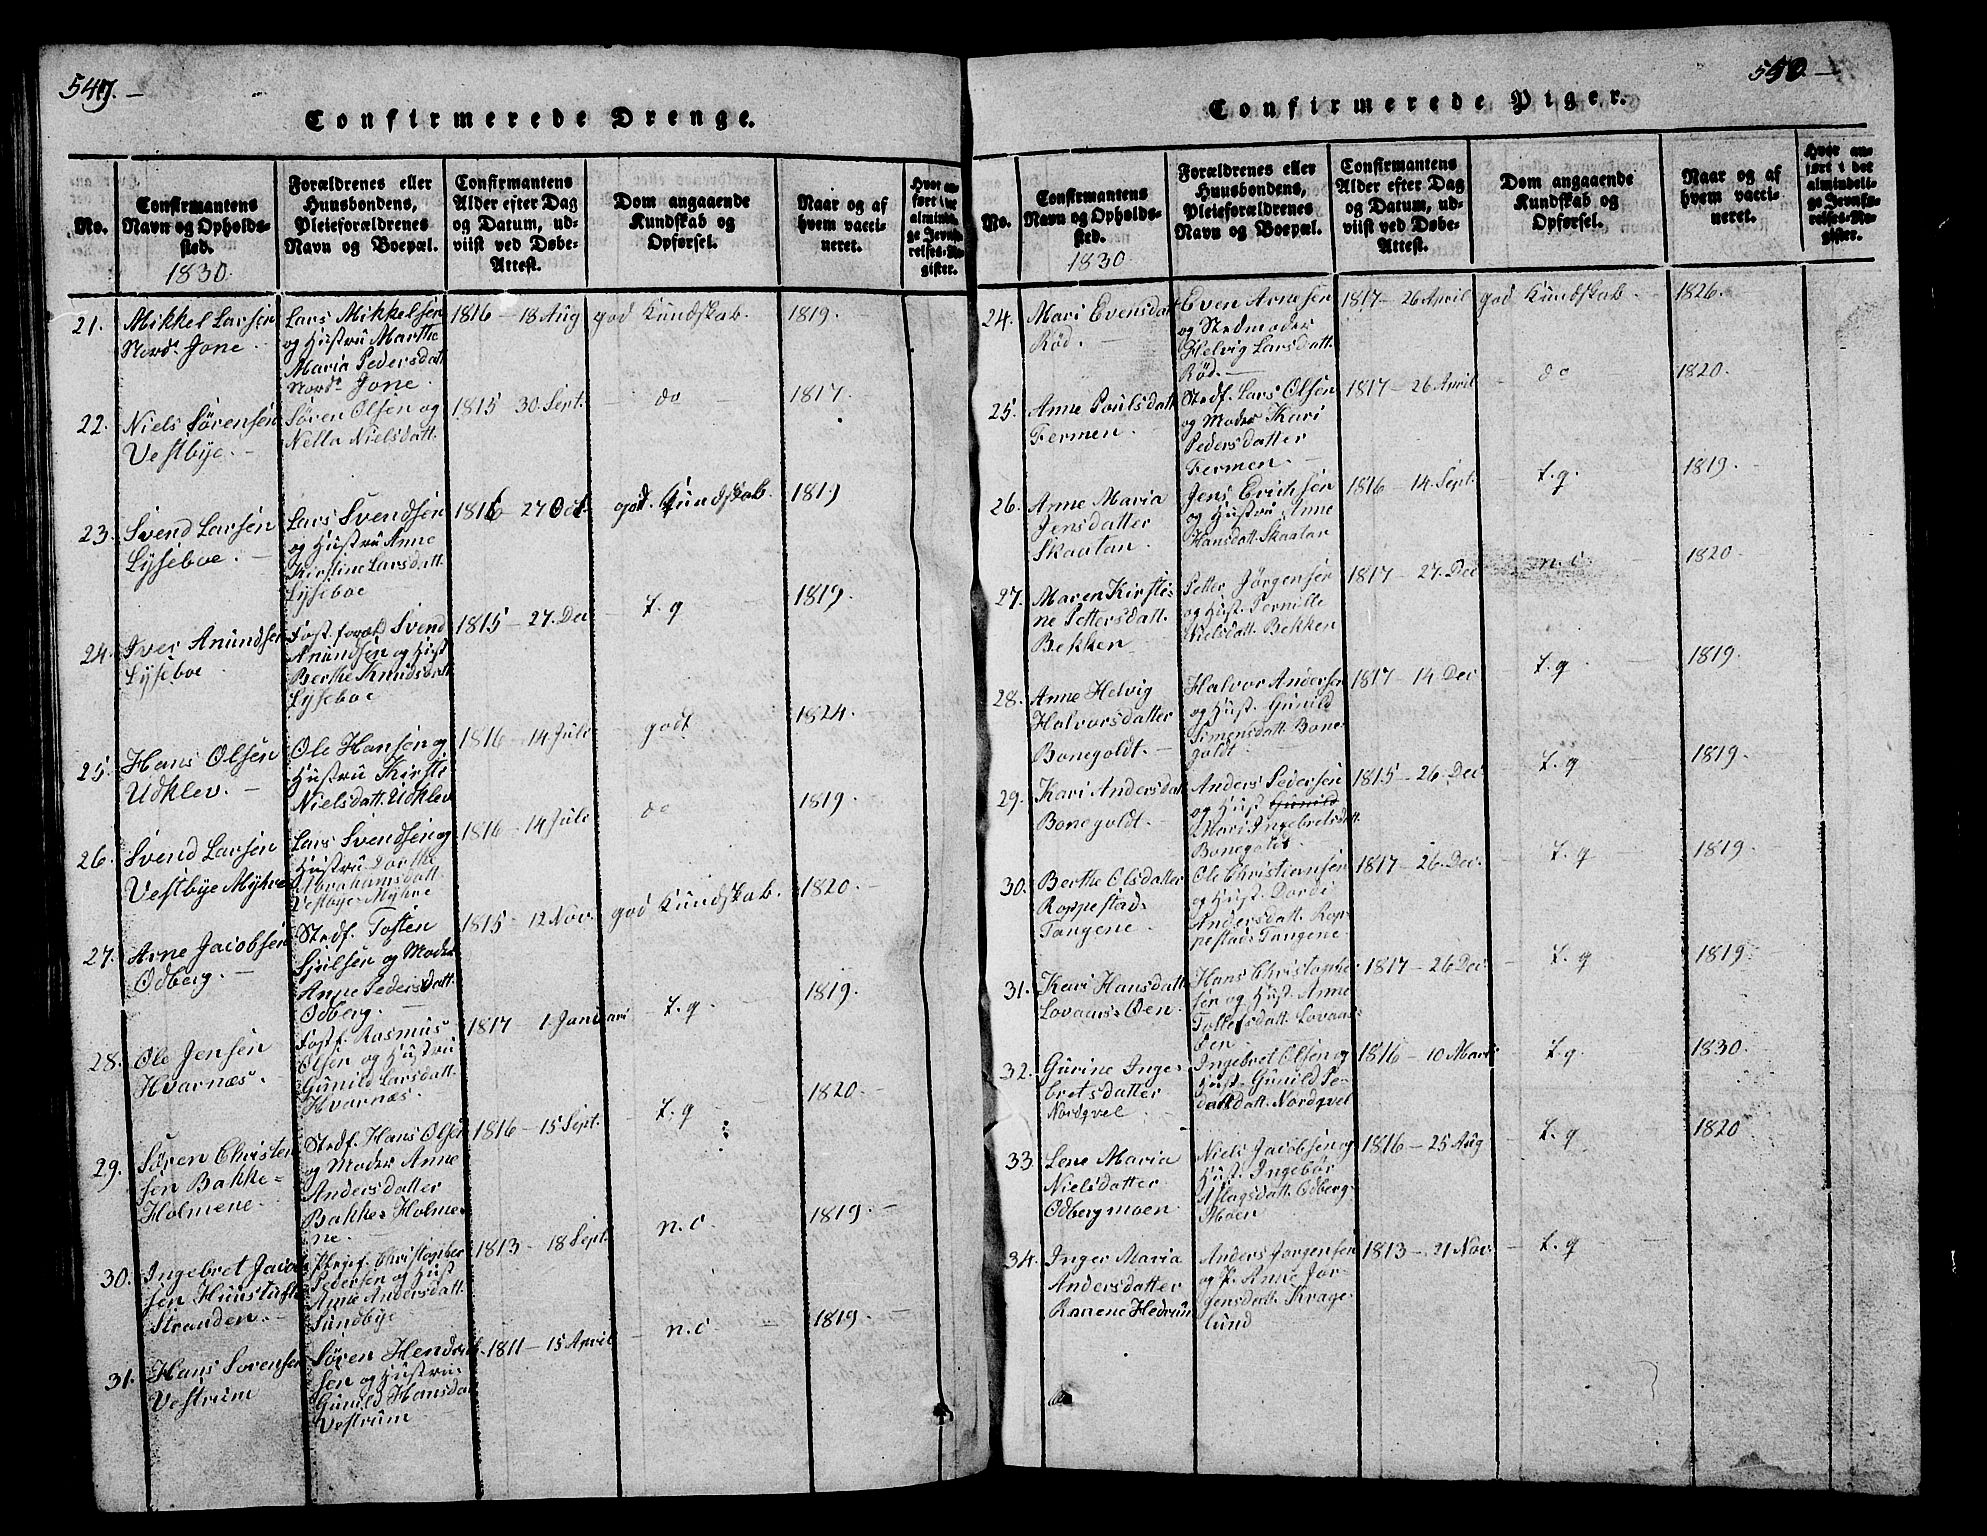 549.
Confirmerede Drenge.
No.
Confirmantens
Navn og Opholds-
sted.
1830.
Forældrenes eller
Huusbondens,
Pleieforældrenes
Navn og Boepæl.
Confirmantens
Alder efter Dag
og Datum, ud-
viist ved Døbe-
Attest.
Dom angaaende
Kundskab og
Opførsel.
Naar og af
hvem vacci-
neret.
Hvor an-
ført i det
almindeli-
ge Jevnfø-
relses-Re-
gister.
21.
Mikkel Larsen
Nordr Jone
Lars Mikkelsen
og Hustru Marthe
Maria Pedersdatt
Nordr Jone.
1816 - 18 Aug
god Kundskab.
1819.
22.
Niels Sørensen
Vestbye.
Søren Olsen og
Nella Nielsdatt.
1815 - 30 Sept.
do
1817.
23.
Svend Larsen
Lyseboe.
Lars Svendsen
og Hustru Anne
Kirstine Larsdatt.
Lyseboe
1816 - 27 Oct.
god Kundskab.
1819
24.
Iver Anundsen
Lyseboe
Fost. foræl Svend
Anundsen og Hust
Berthe Knudsdatt
Lyseboe
1815 - 27. Dec
t. g
1819.
25.
Hans Olsen
Udklev.
Ole Hansen og
Hustru Kirsti
Nielsdatt. Udklev
1816 - 14 Juli
godt
1824.
26.
Svend Larsen
Vestbye Myhre
Lars Svendsen og
Hustru Dorthe
Abrahamsdatt
Vestbye Myhre
1816 - 14 Juli
do
1819.
27.
Arne Jacobsen
Odberg.
Stedf. Tosten
Sjulsen og Moder
Anne Pedersdatt.
Odberg.
1815 - 12 Nov.
god Kundskab.
1820.
28.
Ole Jensen
Hvarnæs.
Fostf. Rasmus
Olsen og Hustru
Gunild Larsdatt.
Hvarnæs.
1817 - 1. Januari
t. g.
1819.
29.
Søren Christen
sen Bakke-
Holmene.
Stedf. Hans Olsen
og Moder Anne
Andersdatter
Bakke Holme-
ne.
1816 - 15 Sept.
t. g
1820.
30.
Ingebret Jacob
sen
Stranden.
Christopher
Pedersen og Hust
Anne Andersdatt.
Sundbye
1813 - 18 Sept.
n. c.
1819.
31.
Hans Sorensen
Vestrum
Søren Hendrik-
sen og Hustru
Gunild Hansdat
Vestrum
1811 - 15 April
n. c.
1819.
550.
Confirmerede Piger.
No.
Confirmantens
Navn og Opholds-
sted.
1830
Forældrenes eller
Huusbondens,
Pleieforældrenes
Navn og Boepæl.
Confirmantens
Alder efter Dag
og Datum, ud-
viist ved Døbe-
Attest.
Dom angaaende
Kundskab og
Opførsel.
Naar og af
hvem vacci-
neret.
Hvor an-
ført i det
almindeli-
ge Jevnfø-
relses-Re-
gister.
24.
Mari Evensdat
Rød.
Even Arnesen
og Stedmoder
Helvig Larsdatt.
Rød.
1817 - 26 April
god Kundskab.
1826.
25.
Anne Poulsdatt
Fermen.
Stedf. Lars Olsen
og Moder Kari
Pedersdatter
Fermen.
1817 - 26 April
do
1820.
26.
Anne Maria
Jensdatter
Skaatan.
Jens Erichsen
og Hustru Anne
Hansdatt. Skaatan
1816 - 14 Sept.
t. g.
1819.
27.
Maren Kirsti-
ne Pettersdatt.
Bekken
Petter Jörgensen
og Hust. Pernille
Nielsdatt. Bekken
1817 - 27. Dec
n. c
1820.
28.
Anne Helvig
Halvorsdatter
Bonegoldt.
Halvor Andersen
og Hust. Gunild
Simensdatt. Bone-
goldt.
1817 - 14 Dec
t. g
1819.
29.
Kari Andersdat
Bonegoldt.
Anders Pedersen
og Hust Gunild
Mari Ingebretsdatt
Bonegoldt
1815 - 26. Dec
t. g
1819.
30.
Berthe Olsdatter
Roppestad-
Tangene.
Ole Christiansen
og Hust. Dordi
Andersdatt. Rop-
pestad Tangene.
1817 - 26 Dec.
t. g
1819.
31.
Kari Hansdatt
Lovaas Øen
Hans Christophe-
sen og Hust. Anne
Tostensdatt. Lovaas
Øen.
1817 - 26 Dec.
t. g
1819.
32.
Gurine Inge-
bretsdatter
Nordqvel
Ingebret Olsen og
Hust. Gunild Pe-
dersdatt. Nordqvel
1816 - 10 Marti
t. g.
1830.
33.
Lene Maria
Nielsdatter
Odbergmoen
Niels Jacobsen og
Hust. Ingebör
Aslagsdatt. Odberg-
Moen
1816 - 25 Aug
t. g
1820
34.
Inger Maria
Andersdatter
Ranene Hedrum
Anders Jorgensen
og K. Anne Jor-
gensdatt. Krage-
lund
1813 - 21 Nov.
t. g